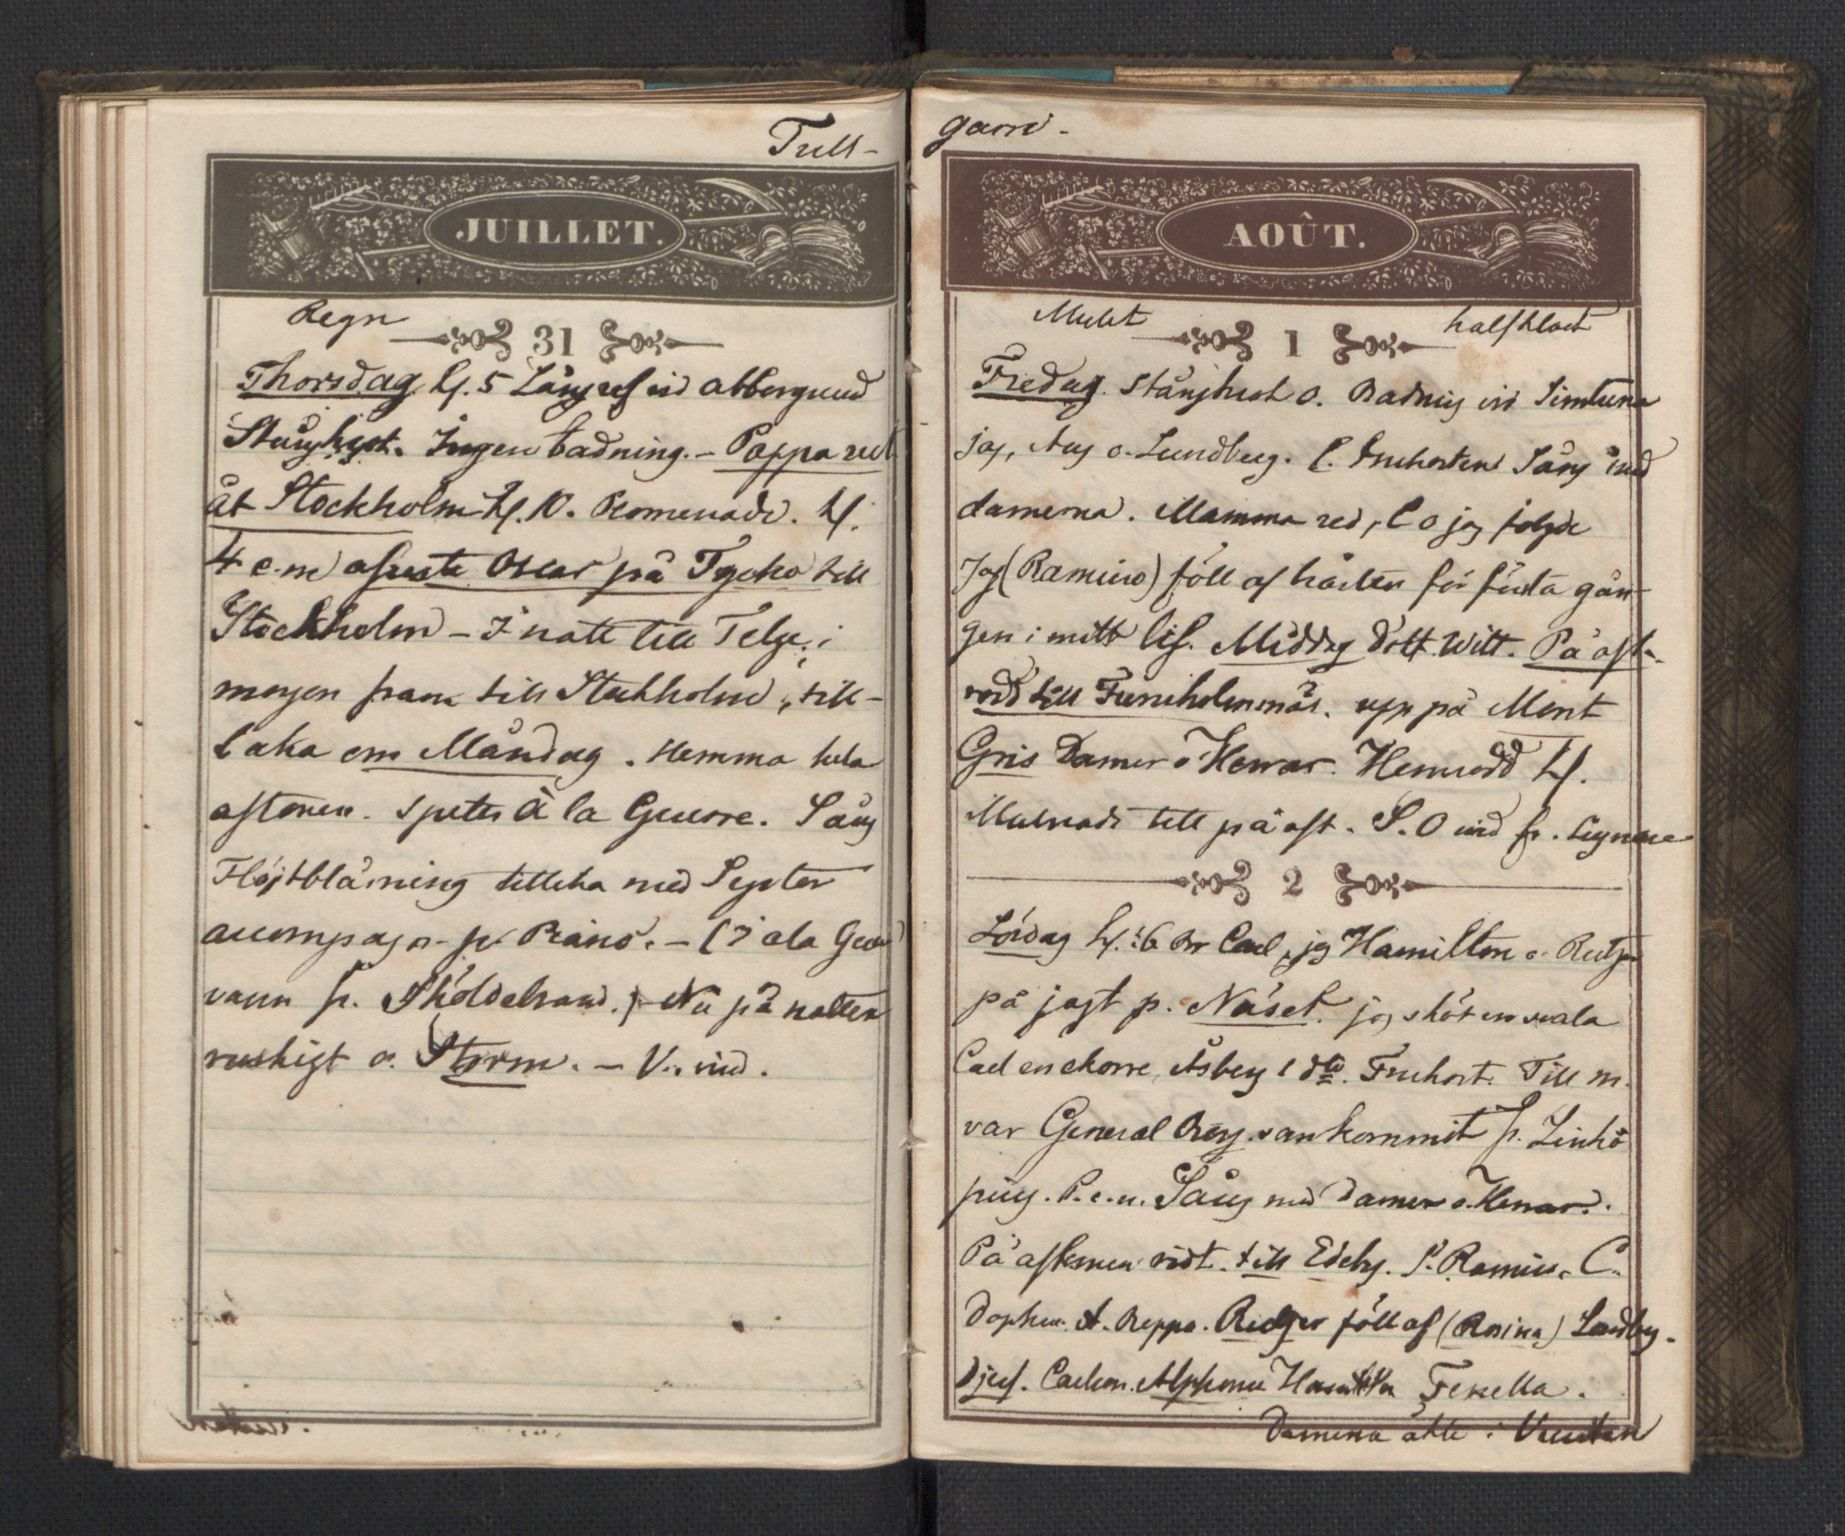 Tull-
JUILLET.
Regn
31
Thorsdag. kl. 5 Långref vid abborgrund
Stånghest. Ingen badning. - Pappa red
åt Stockholm kl. 10. Promenade. kl.
4 e.m afreste Oscar på Tycho till
Stockholm - I natt till Telge, i
morgon fram till Stockholm, till-
baka om Måndag. Hemma hela
aftonen. Speltes à la Guerre. Sång
Flöjtblåsning
accompagn. p. Piano. - (J ala Guer
vann fr. Sköldebrand.) - Nu på natten
ruskigt o. Storm. - V. vind.
garn -
AOÛT.
Mulet
halfklart
1
Fredag. Stånghest o. Badning vid Simtuna
jag, Aug o. Lundberg. e. Frukosten Sång med
damerna. Mamma red, C o jag följde
Jag (Ramiro) föll af hästen för första gån-
gen i mitt lif. Middag Dokt. Witt. På aft.
rodd till Fureholmsnäs. upp på Mont
Gris Damer o Herrar. Hemrodd kl.
Marknads tält på aft. S.O vind fr.
2
Lördag kl. ½6 for Carl, jag Hamilton o. Rutger
på jagt p. Näset. jag sköt en svala
Carl en ekorre, Åsberg 1 dto. Frukost. Till m.
var General ankommit fr. Linkö
ping. P. e. m. Sång med Damer o. Herrar.
På aftonen ridt. till Edeby. J. Ramiro, C.
Dophen. A. Beppo. Rutger föll af (Rosina) Lundberg.
Djef. Carlson. Alphonse Hamilton Fenella.
Damerna åkte i Vursten